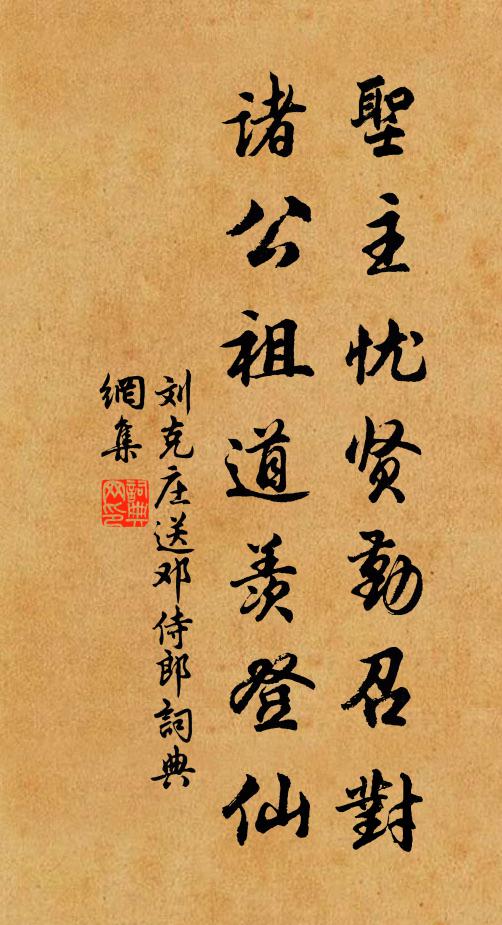 聖主忧贤勤召對
诸公祖道羡登仙
刘克庄送邓侍郎詞典
網集
詞典
网印